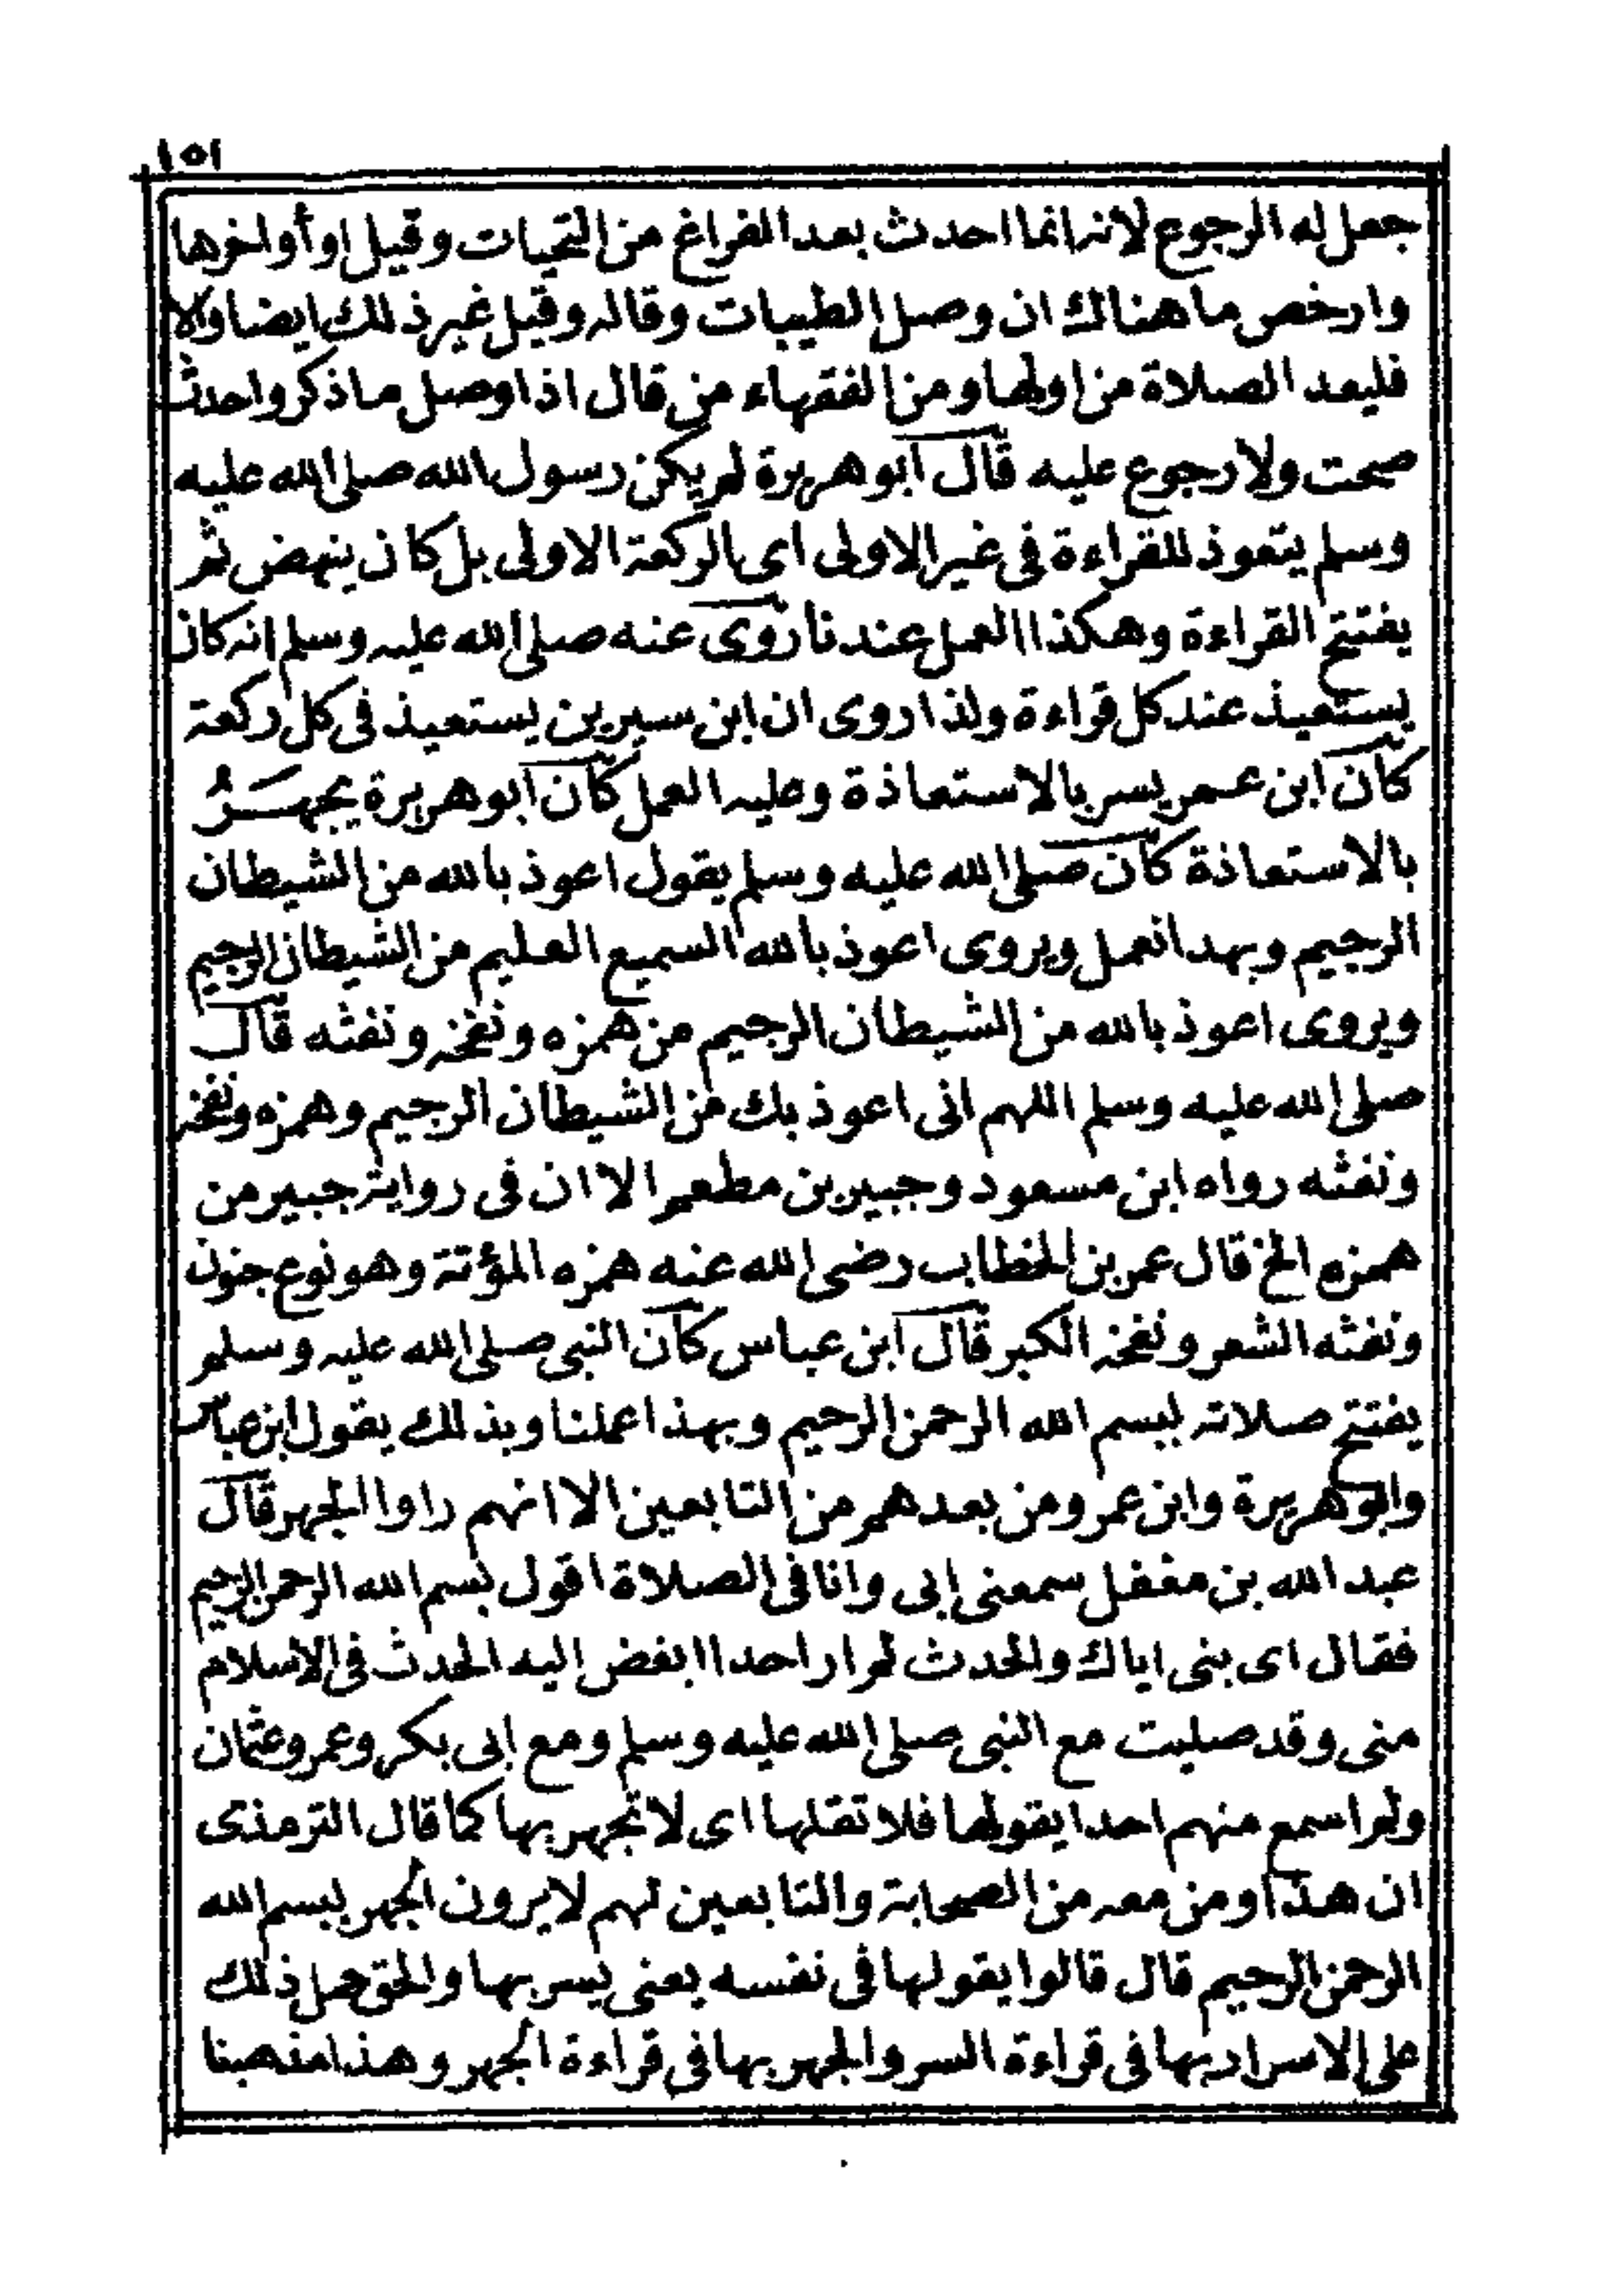 ١٥١
جعل له الرجوع لأنه انما احدث بعد الفراغ من التحيات وقيل او أواخرها
وارخص ما هناك ان وصل الطيبات وقاله وقيل غير ذلك ايضا والا
فليعد الصلاة من اولها ومن الفقهاء من قال اذا وصل ما ذكر واحدث
صحت ولا رجوع عليه قال ابو هريرة لم يكن رسول الله صلى الله عليه
وسلم يتعوذ للقراءة فى غير الاولى اى الركعة الاولى بل كان ينهض ثم
يفتتح القراءة وهكذا العمل عندنا روى عنه صلى الله عليه وسلم انه كان
يستعيذ عند كل قراءة ولذا روى ان ابن سيرين يستعيذ فى كل ركعة
كان ابن عمر يسر بالاستعاذة وعليه العمل كان ابو هريرة يجهر
بالاستعاذة كان صلى الله عليه وسلم يقول اعوذ بالله من الشيطان
الرجيم وبهدا نعمل ويروى اعوذ بالله السميع العليم من الشيطان الرجيم
ويروى اعوذ بالله من الشيطان الرجيم من همزه ونفخه ونفثه قال
صلى الله عليه وسلم اللهم انى اعوذ بك من الشيطان الرجيم وهمزه ونفخه
ونفثه رواه ابن مسعود وجبير بن مطعم الا ان فى رواية جبير من
همزه الخ قال عمر بن الخطاب رضى الله عنه همزه المؤتة وهو نوع جنون
ونفثه الشعر ونفخه الكبر قال ابن عباس كان النبى صلى الله عليه وسلم
يفتتح صلاته ببسم الله الرحمن الرحيم وبهذا عملنا وبذلك يقول ابن عباس
وابو هريرة وابن عمر ومن بعدهم من التابعين الا انهم راوا الجهر قال
عبد الله بن مغفل سمعنى ابى وانا فى الصلاة اقول بسم الله الرحمن الرحيم
فقال اى بنى اياك والحدث لم ار احدا ابغض اليه الحدث فى الاسلام
منى وقد صليت مع النبى صلى الله عليه وسلم ومع ابى بكر وعمر وعثمان
ولم اسمع منهم احدا يقولها فلا تقلها اى لا تجهر بها كما قال الترمذى
ان هذا ومن معه من الصحابة والتابعين لهم لا يرون الجهر ببسم الله
الرحمن الرحيم قال قالوا يقولها فى نفسه يعنى يسر بها والحق حمل ذلك
على الاسرار بها فى قراءة السر والجهر بها فى قراءة الجهر وهذا مذهبنا